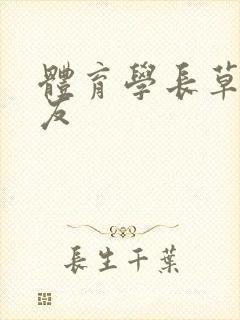 體育學長草
友
長生千葉